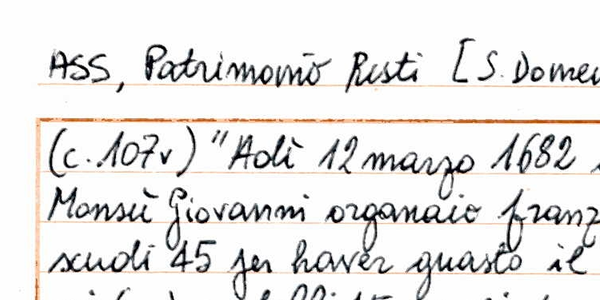 ASS, Patrimonio Resti [S. Domen
(c. 107v) "Adì 12 marzo 1682
Monsù Giovanni organaio franz
scudi 45 per haver guasto il